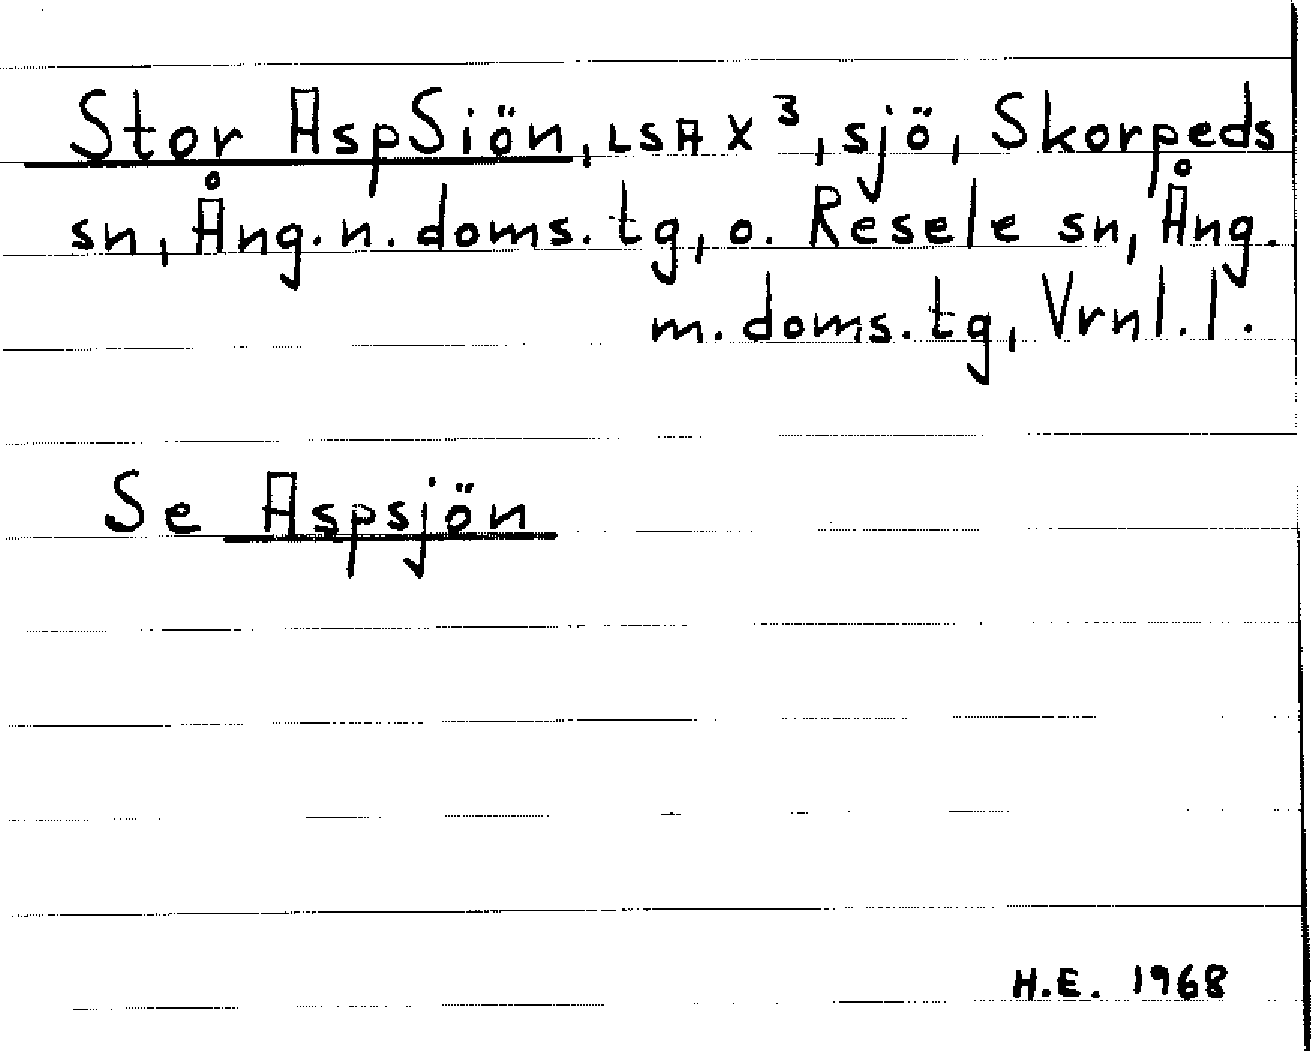 Stor AspSiön, LSA X³, sjö, Skorpeds
sn, Ång. n. doms. tg, o. Resele sn, Ång.
m. doms. tg, Vrnl. l.
Se Aspsjön
H.E. 1968